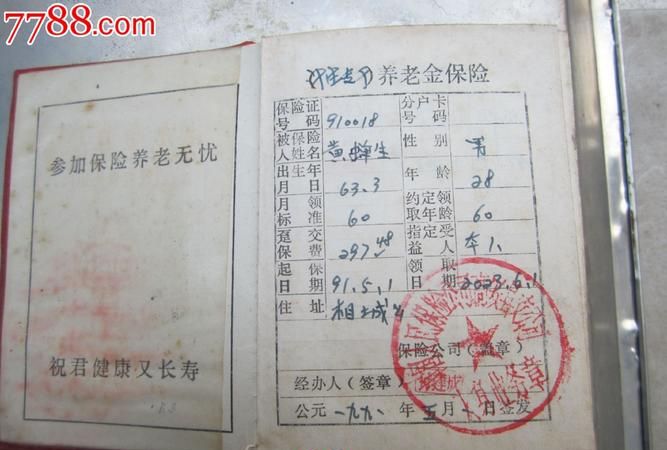 7788.com
参加保险养老无忧
祝君健康又长寿
养老金保险
保险证号码 910018 分户卡号码
被保险人姓名 黄 生 性别 男
出生年月日 63.3 年龄 28
月领标准 60 约定领取年龄 60
趸交保费 297.48 指定受益人 本人
起保日期 91.5.1 领取日期 2023.5.1
住址 相城
保险公司(盖章)
经办人(签章)
公元一九九一年五月一日签发